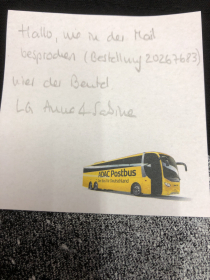 Hallo, wie in der Mail
besprochen (Bestellung 20267683)
hier der Beutel
LG Anne & Sabine
ADAC Postbus